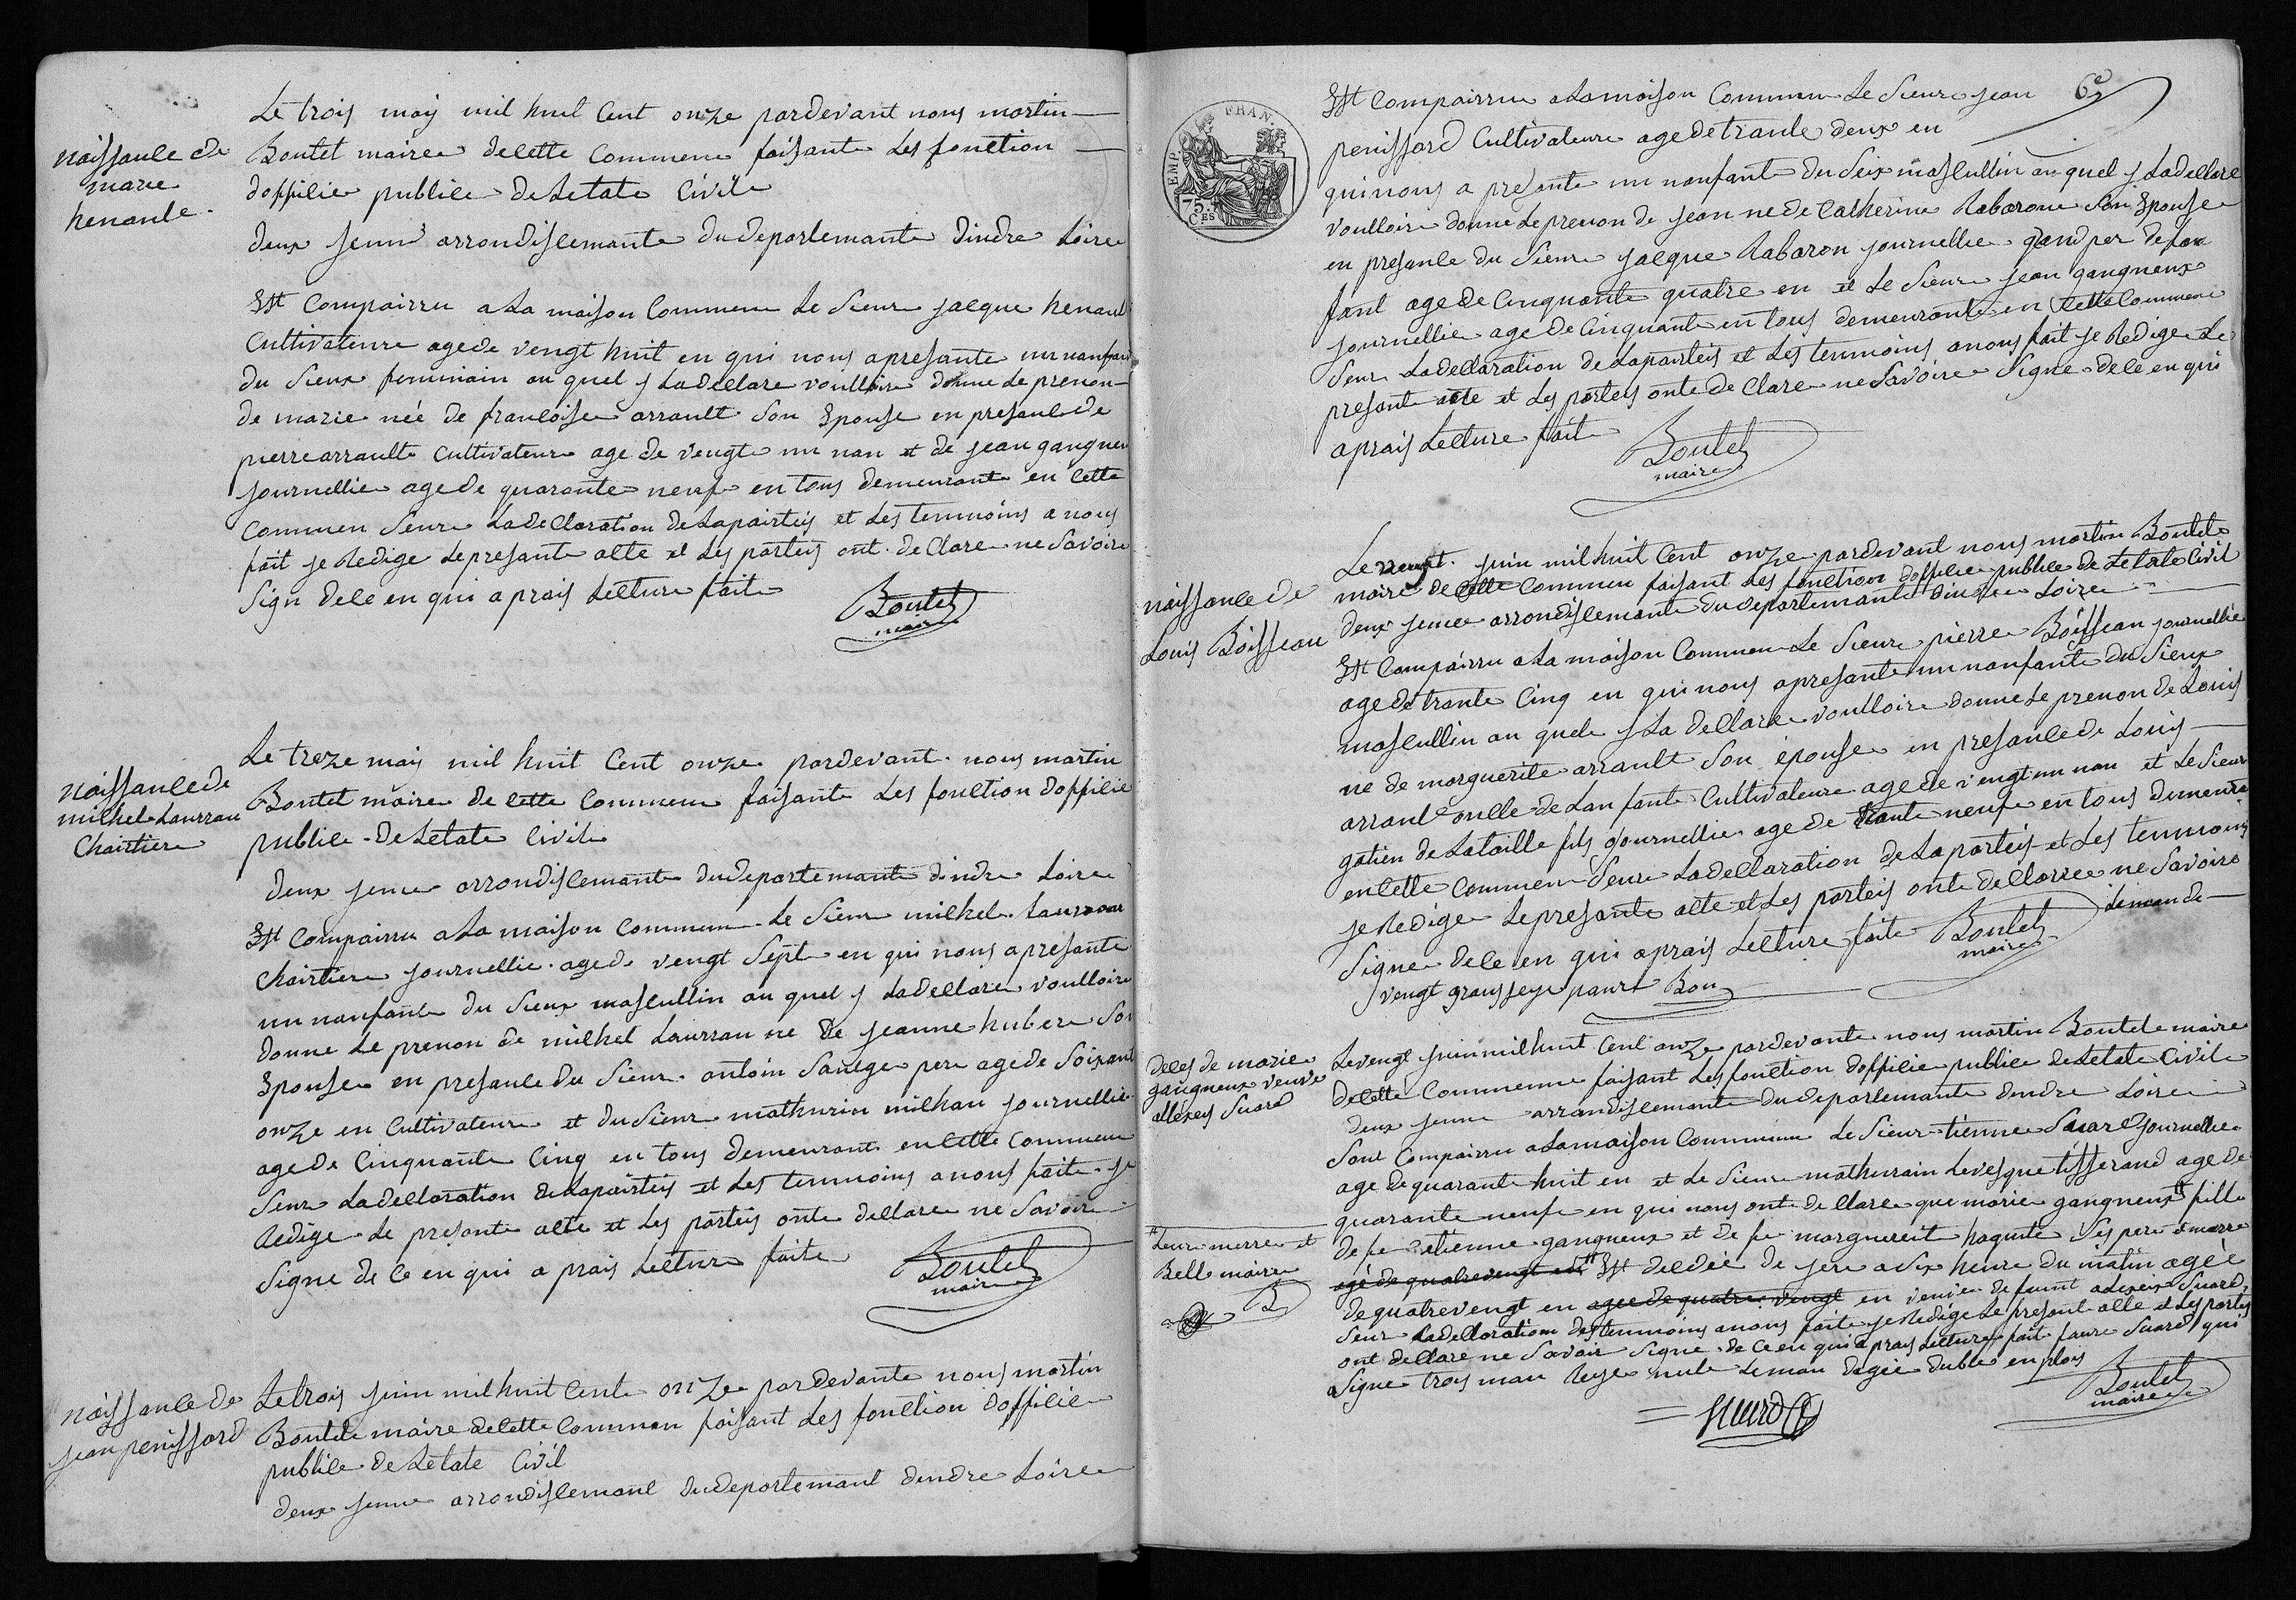 naissance de
marie
henaule.
Le trois maÿ mil huit Cent onze pardevant nous martin
Boutet maire decette Commene faisante Les fonction
dofficie publice deLetate Civile
deux jenne arrondiscemante dudepartemante dindre Loire
Est Compairru aLa maison Commene Le Sieure jacque henault
Cultivateure agede vengt huit en qui nous apresante un nanfan
du Sieux feminiain au quel y Ladeclare voulloire donne Le prenon
de marie née de francoise arrault Son Epouse en presancede
pierrearraulte Cultivateure age de vengte un nan et de jean gangneu
journellie agede quarante neufe en tous demeurante en Cette
Commen Seure Ladeclaration deLapairteis et Les temmoins a nous
fait je Redige Lepresante acte et Les parteis ont declare ne Savoire
Sign dece en qui aprais Lecture faite
Boutet
maire
naissancede
michel Laurrau
Chairtiere
Le treze mais mil huit Cent onze pardevant nous martin
Boutet maire de cette Commene faisante Les fonction dofficie
publice deLetate Civile
deux jenne arrondiscemante dudepartemante dindre Loire
Est Compairru aLa maison Commene Le Sieure michel
Chairtiere journellie agede vengt Sept en qui nous apresante
un nanfante du Sieux mascullin au quel y Ladeclare voulloire
donne Le prenon de michel Laurrau ne de jeanne hubere Son
Epouse en presancede du Sieure antoin Sauvge pere agede Soixant
onze en Cultivateure et du Sieure mathurin michau journellie
agede Cinquante Cinq en tous demeurant encette Commene
Seure Ladeclaration deLapairteis et Les temmoins anous faite je
Redige Le presante acte et Les parteis onte declare ne Savoire
Signe de ce en qui a prais Lecture faite
Boutet
maire
naissancede
jean penissard
Letrois juin mil huit Cente onze pardevante nous martin
Boutete maire decette Commen faisant Les fonction dofficie
publice deLetate Civil
deux jenne arrondiscemant dudepartemant dindre Loire
6e
Est Compairru aLamaison Commene Le Sieure jean
penissard Cultivateure agedetrante deux en
quinous a presante un nanfante du Seix mascullin au quel y Ladeclare
voulloire donne Leprenon de jean nede Catherine Rabaroue Son Epouse
en presance du Sieure jacque Rabaron journellie grandper delan
fant agede Cinquante quatre en et Le Sieure jean gangneux
journellie agede Cinquante en tous demeurante en Cette Commene
Seur Ladeclaration deLaparteis et Les temmoins anous fait je Redige Le
presante acte et Les parteis onte declare ne Savoire Signe dece en qui
aprais Lecture fait
Boutet
maire
naissance de
Louis Boisseau
Le vengt juin mil huit Cent onze pardevant nous martin Boutete
maire decette Commen faisant Les fonction dofficie publice de Letate Civil
deux jenne arrondiscemante dudepartemante dindre Loire
Est Compairru aLa maison Commene Le Sieure pierre Boisseau journellie
agedetrante Cinq en quinous apresante un nanfante du Sieux
mascullin au quele y La declare voulloire donne Le prenon de Louis
ne de marguerite arrault Son epouse en presancede Louis
arrault oncle deLanfante Cultivateure agede vengt un nan et Le Sieur
gatien deLataille fils journellie agede trante neufe en tous demeura
encette Commene Seure Ladeclaration deLaparteis et Les temmoins
je Redige Lepresante acte et Les parteis onte declaree ne Savoire
Signe dece en qui aprais Lecture faite
vengt
Bon
Boutet
maire
deces de marie
gangneux veuve
allexeis Suard
Levengt juin mil huit Cent onze pardevante nous martin Boutete maire
decette Commenne faisant Les fonction dofficie publice deLetate Civile
deux jenne arrandiscemante dudepartemante dindre Loire
Sont Compairru aLamaison Commene Le Sieur etienne Suard journellie
age dequarante huit en et Le Sieure mathurrain Levesque tisserand agede
quarante neufe en qui nous ont declare que marie gangneux fille
de fe etienne gangneux et de fe marguereit haguete Ses pere et marre
age de quatrevengt en Est decdée de jere a Six heure du matin agée
dequatrevengt en agee de quatre vengt en venve defunt alexeis Suard
Seur Ladeclaration des temmoins anous faite je Redige Le presant acte et Les parteis
ont declare ne Savoir Signe dece en qui aprais Lecture fait Suard qui
Signe trois mau Reye nule
Leur merre et
Belle maire
B
Boutet
maire
Suard
FRAN.
EMP.
75.
C.ES